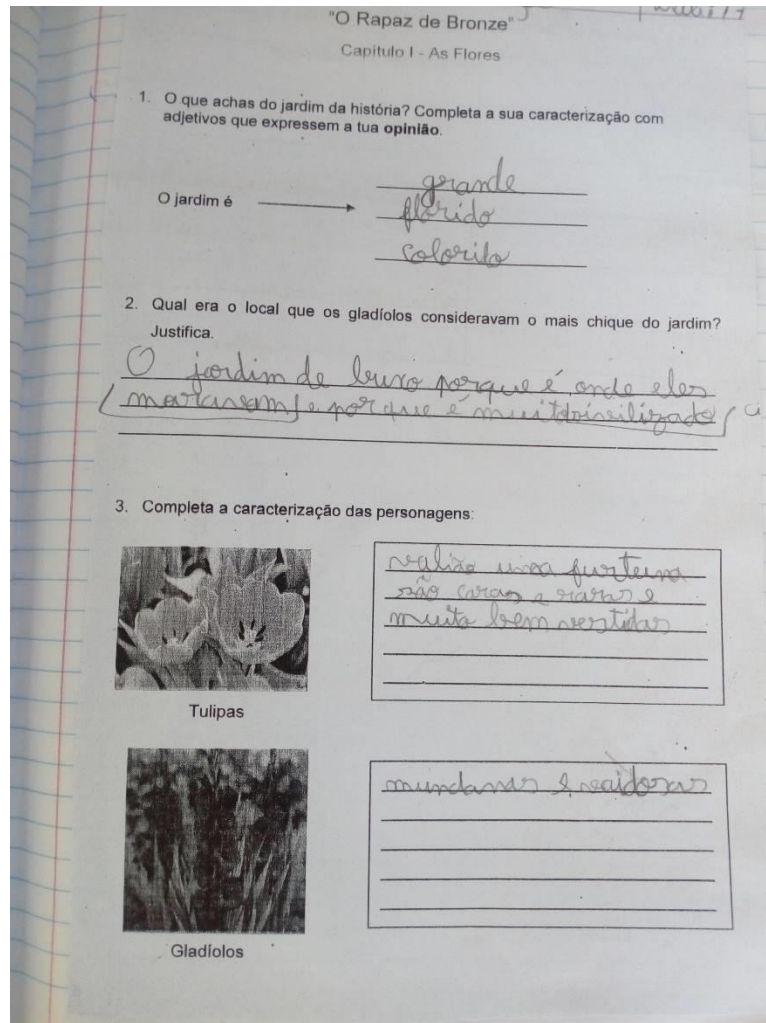 "O Rapaz de Bronze"
Capítulo I - As Flores
1. O que achas do jardim da história? Completa a sua caracterização com
adjetivos que expressem a tua opinião.
grande
O jardim é
florido
colorito
2. Qual era o local que os gladíolos consideravam o mais chique do jardim?
Justifica.
O jardim de buxo porque é onde eles
moravam e porque é muito
3. Completa a caracterização das personagens:
valiso uma furtuna
são caras e raras e
muito bem vestidas
Tulipas
mundanas e vaidosas
Gladíolos